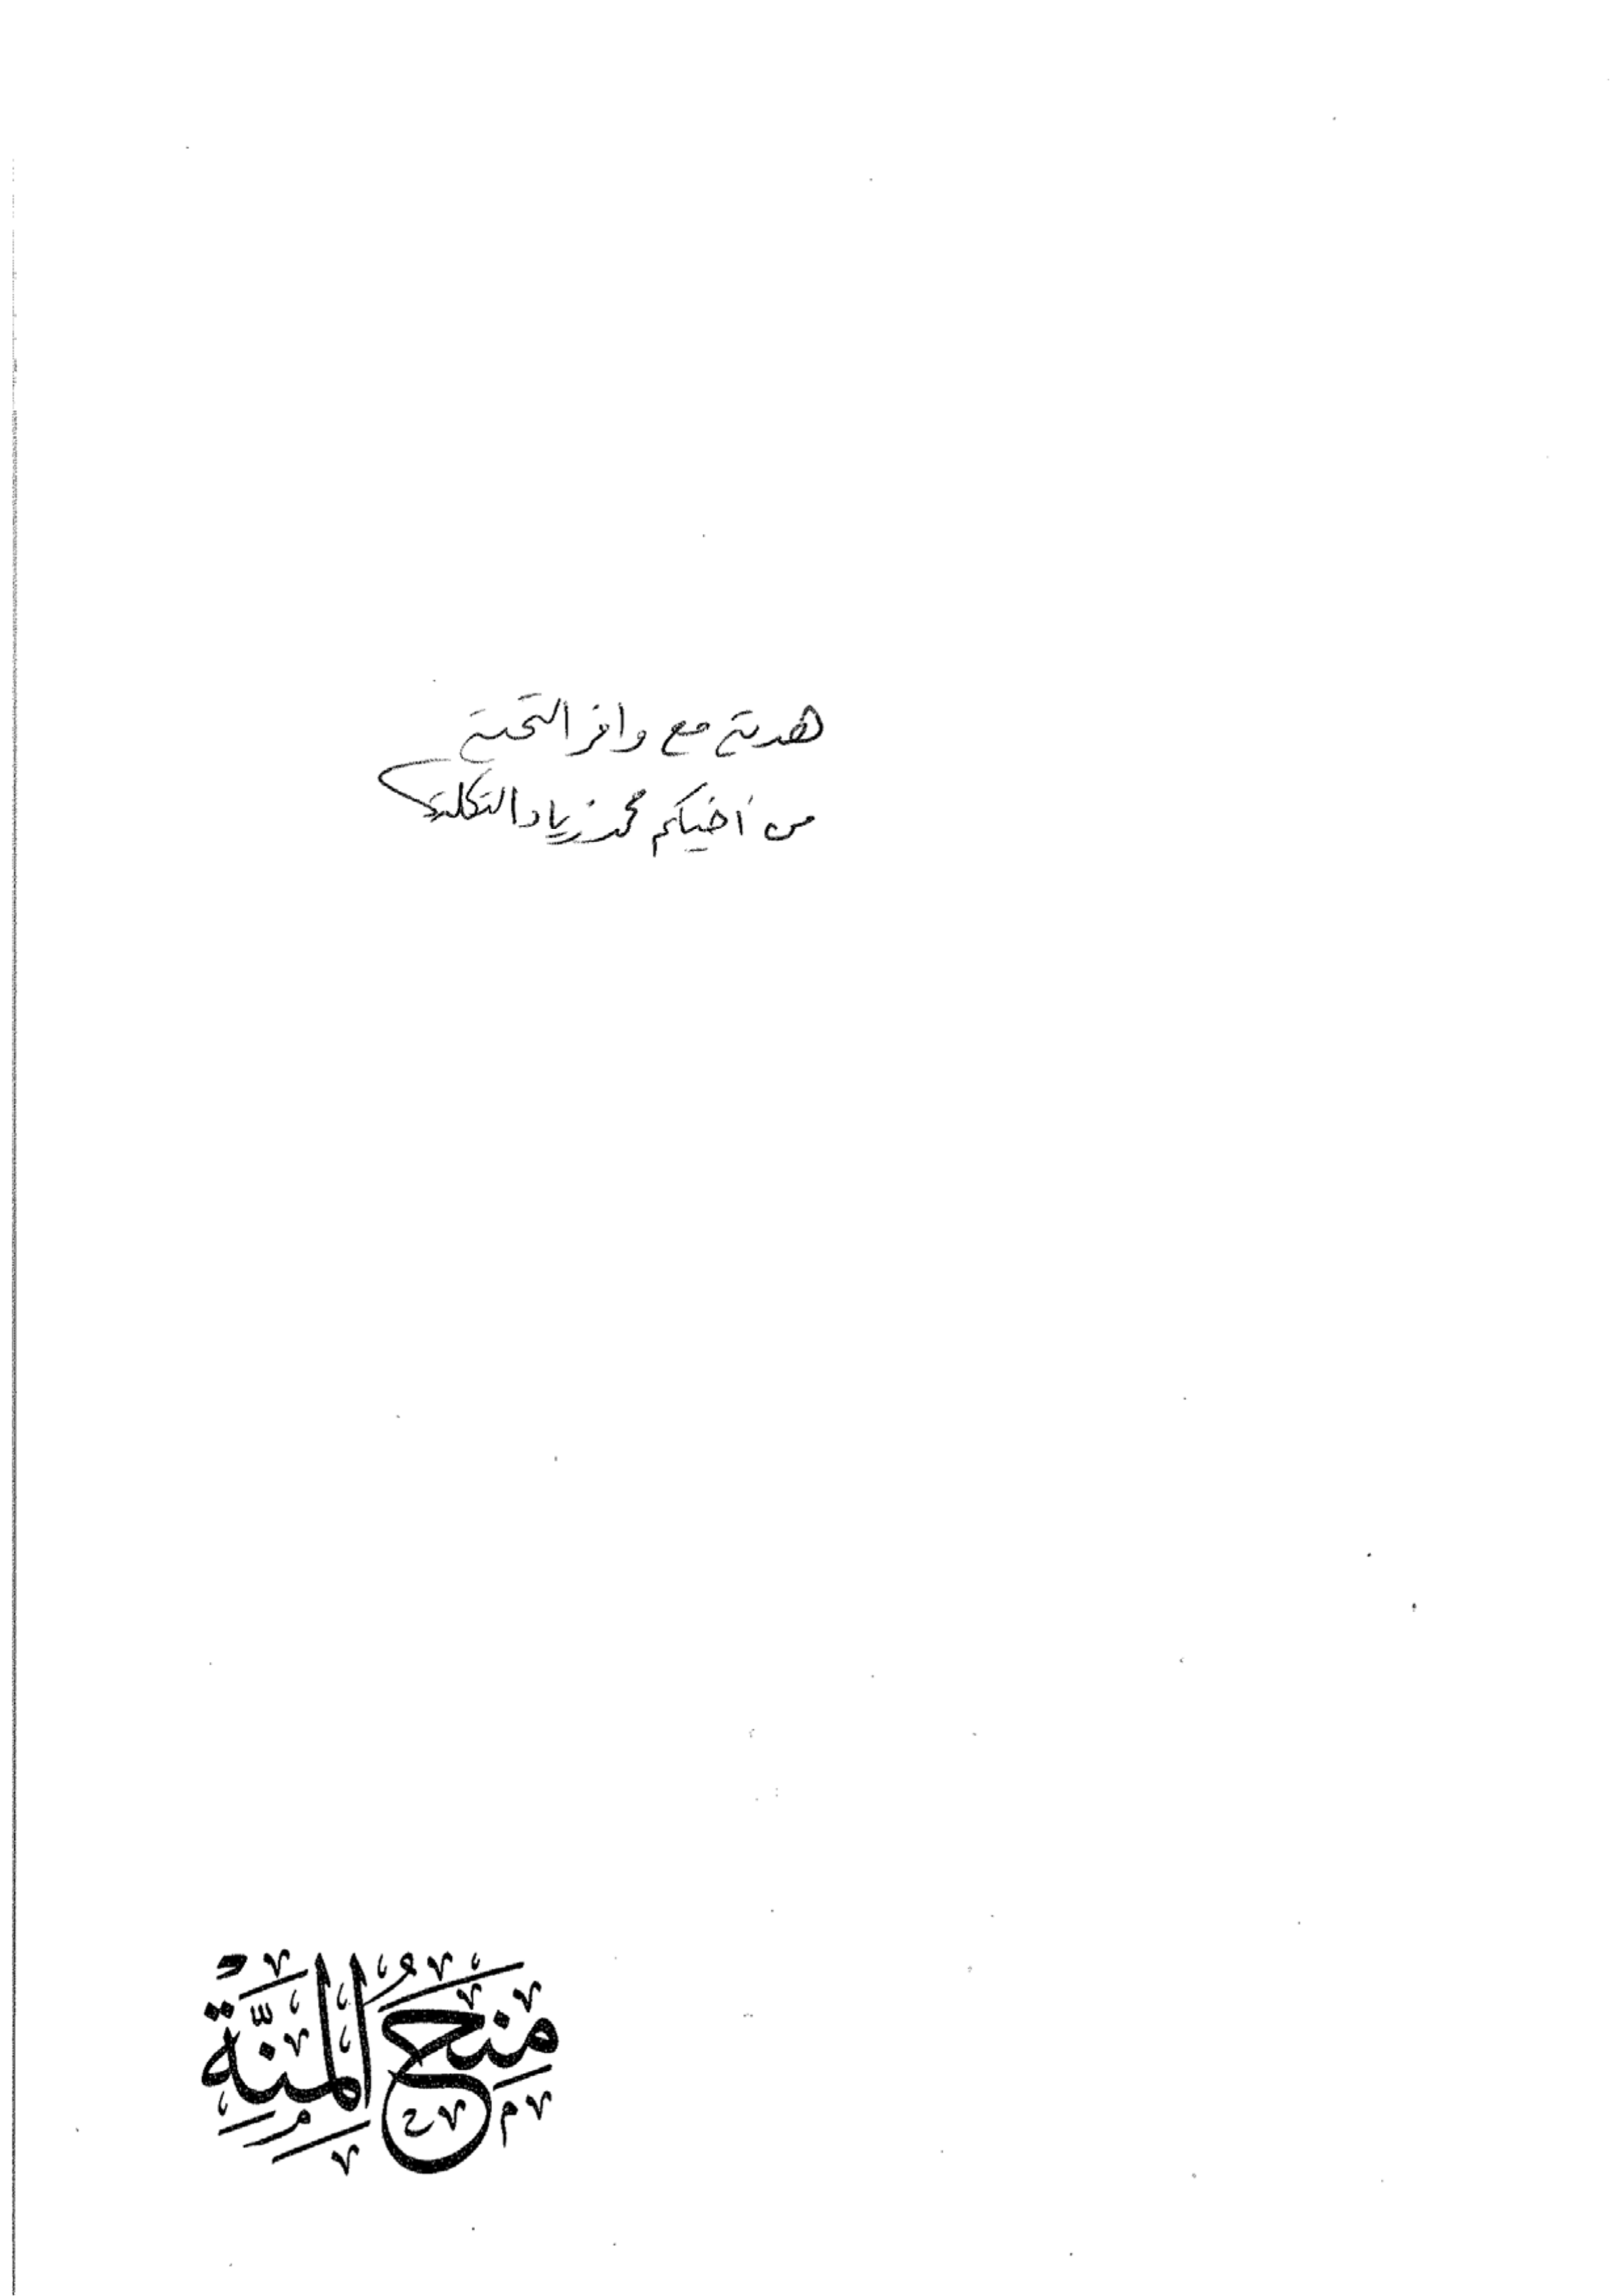 هدية مع وافر التحية
من أخيكم محمد زياد التكلة
مِنَحُ المِنَّةِ